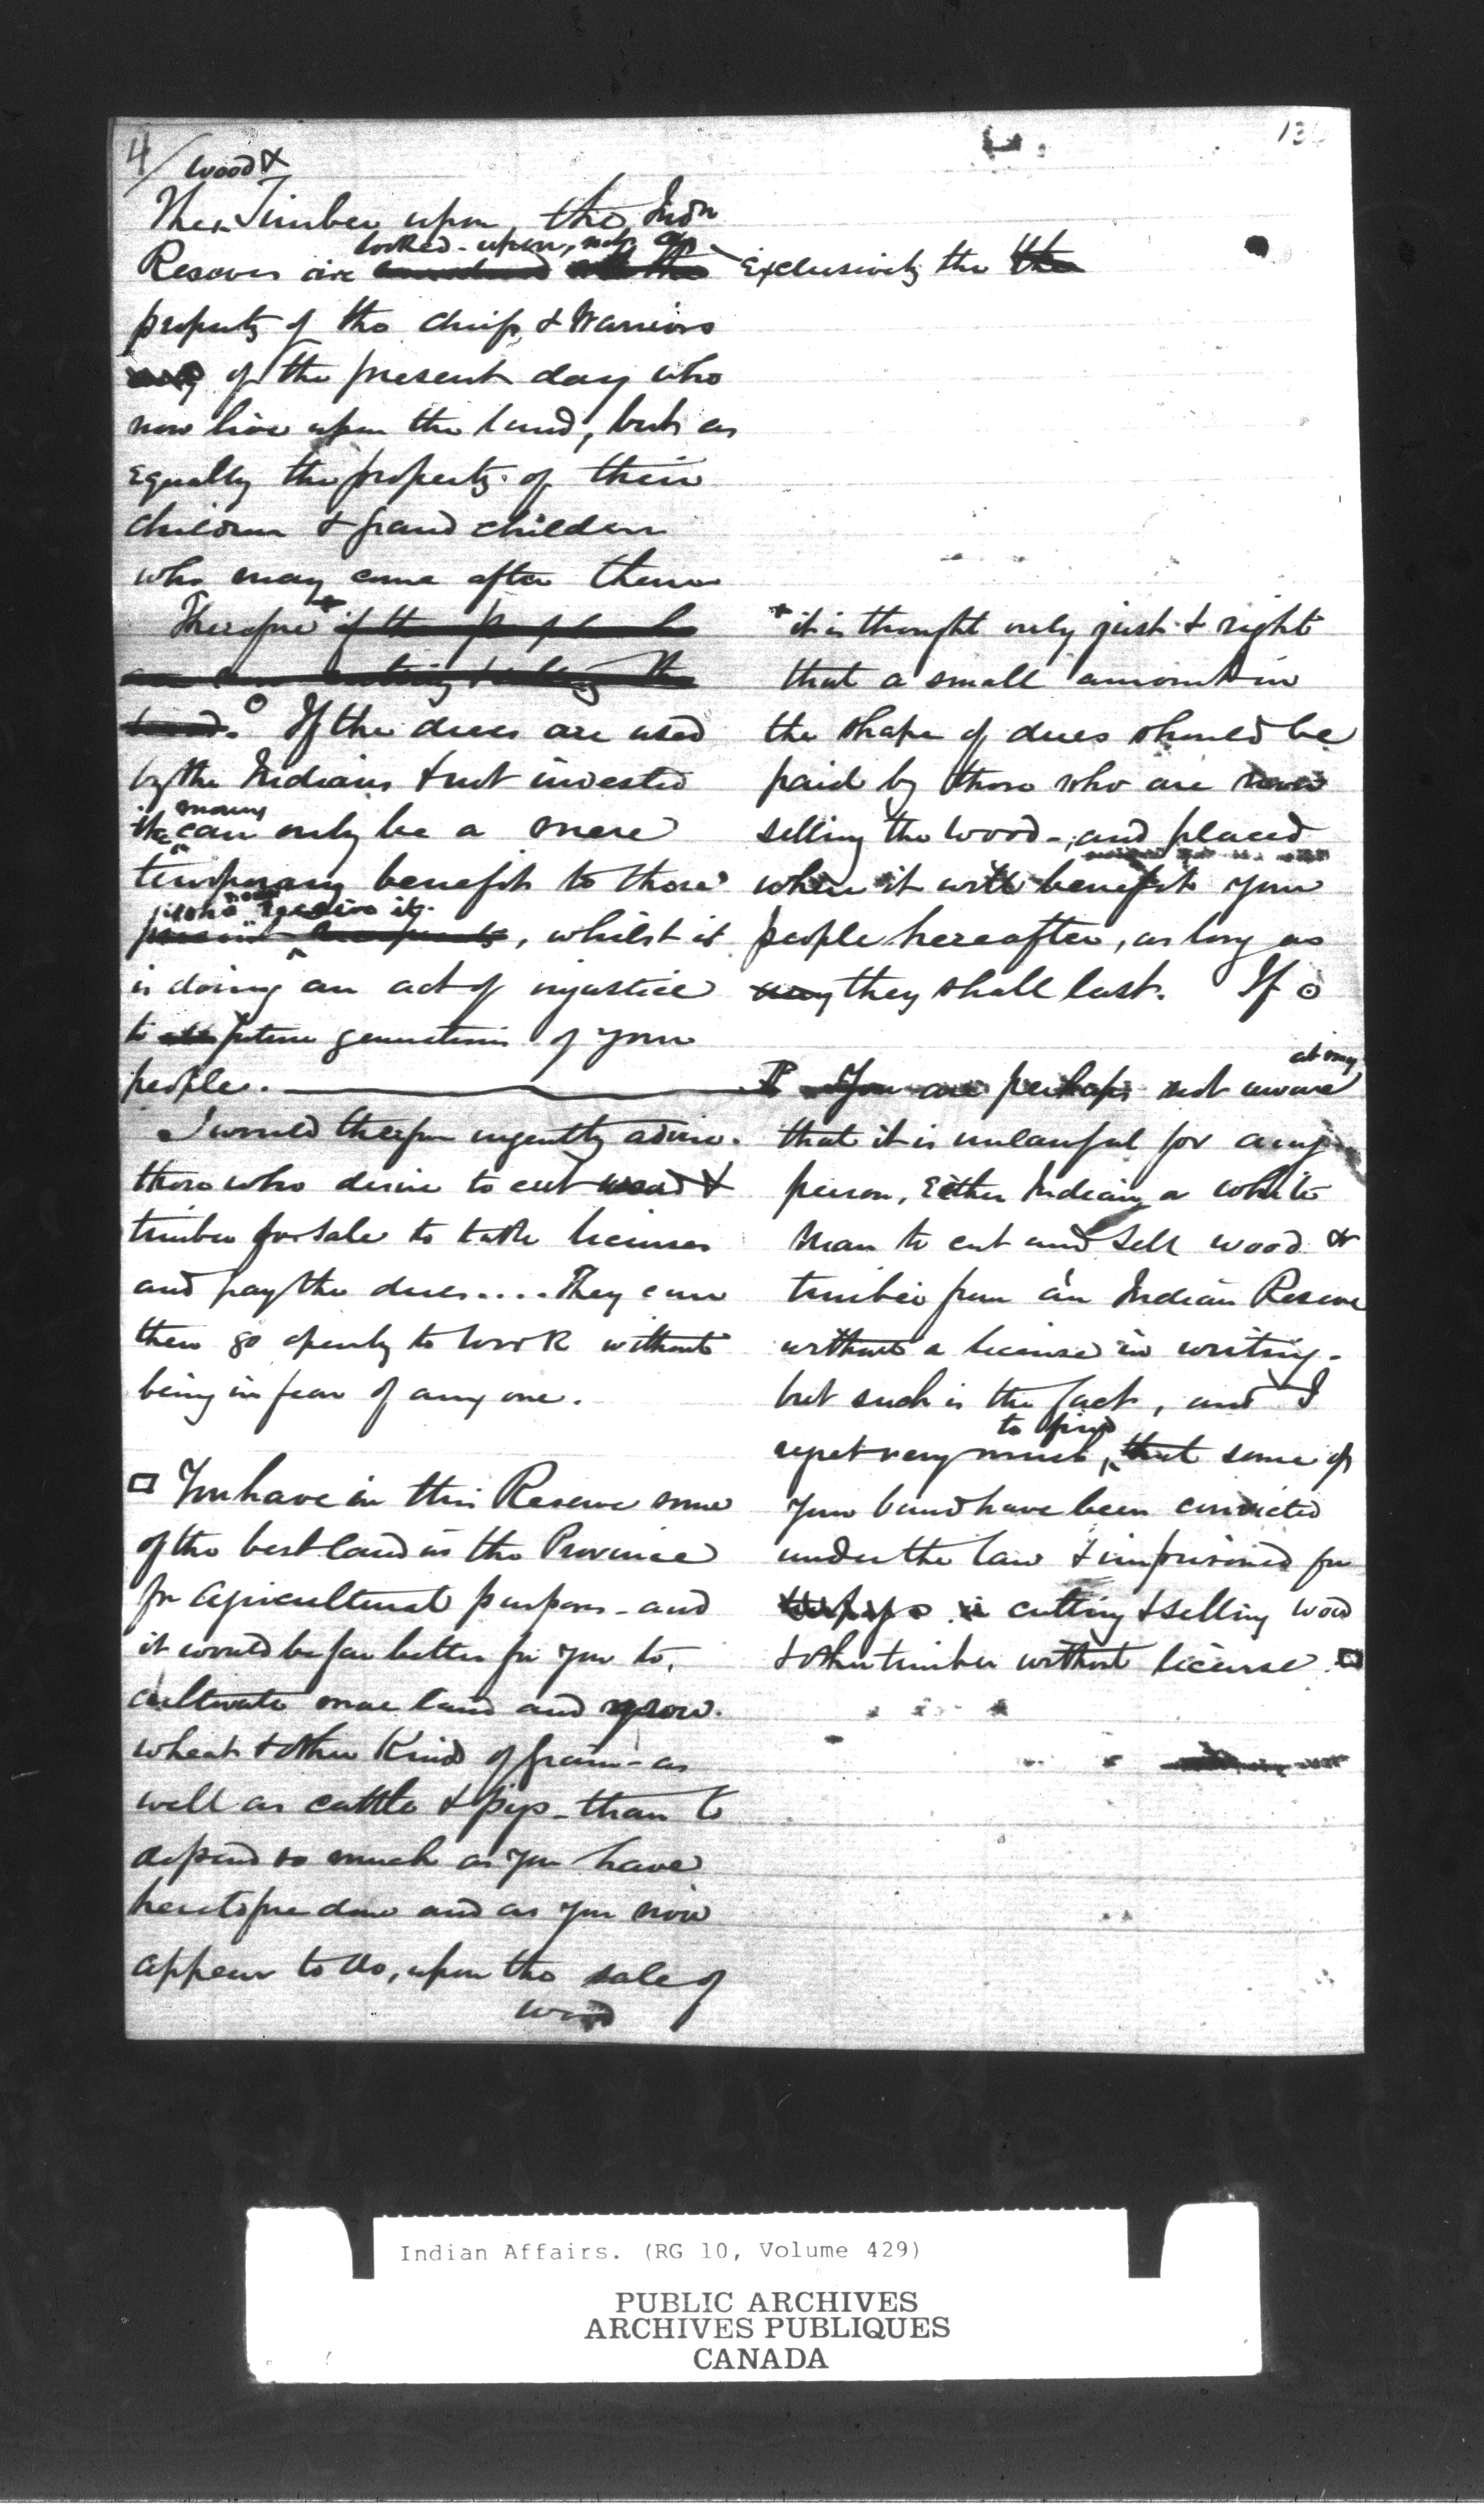 4/
wood &
The Timber upon the Indn
looked-upon, not as
Reserves are exclusively the the
property of the chiefs & Warriors
of the present day who
now live upon the land, but as
equally the property of their
children & grand children
who may come after them
Therefore
If the dues are used
by the Indians & not invested
money
the can only be a mere
temporary benefit to those
who now receive it
, whilst it
is doing an act of injustice
to future generations of your
people.
I would therefore urgently advise
those who desire to cut wood &
timber for sale to take licenses
and pay the dues.... They can
then go openly to work without
being in fear of any one.
You have in this Reserve some
of the best land in the Province
for agricultural purposes - and
it would be far better for you to
cultivate more land and grow
wheat & other kind of grain - as
well as cattle & pigs - than to
depend so much as you have
heretofore done and as you now
appear to do, upon the sale of
wood
it is thought only just & right
that a small amount in
the shape of dues should be
paid by those who are now
selling the wood -, and placed
where it will benefit your
people hereafter, as long as
any they shall last. If
at may
You are perhaps not aware
that it is unlawful for any
person, either Indian or white
man to cut and sell wood or
timber from an Indian Reserve
without a license in writing -
but such is the fact, and I
to find
regret very much, that some of
your band have been convicted
under the law & imprisoned for
cutting & selling wood
& other timber without license.
Indian Affairs. (RG 10, Volume 429)
PUBLIC ARCHIVES
ARCHIVES PUBLIQUES
CANADA